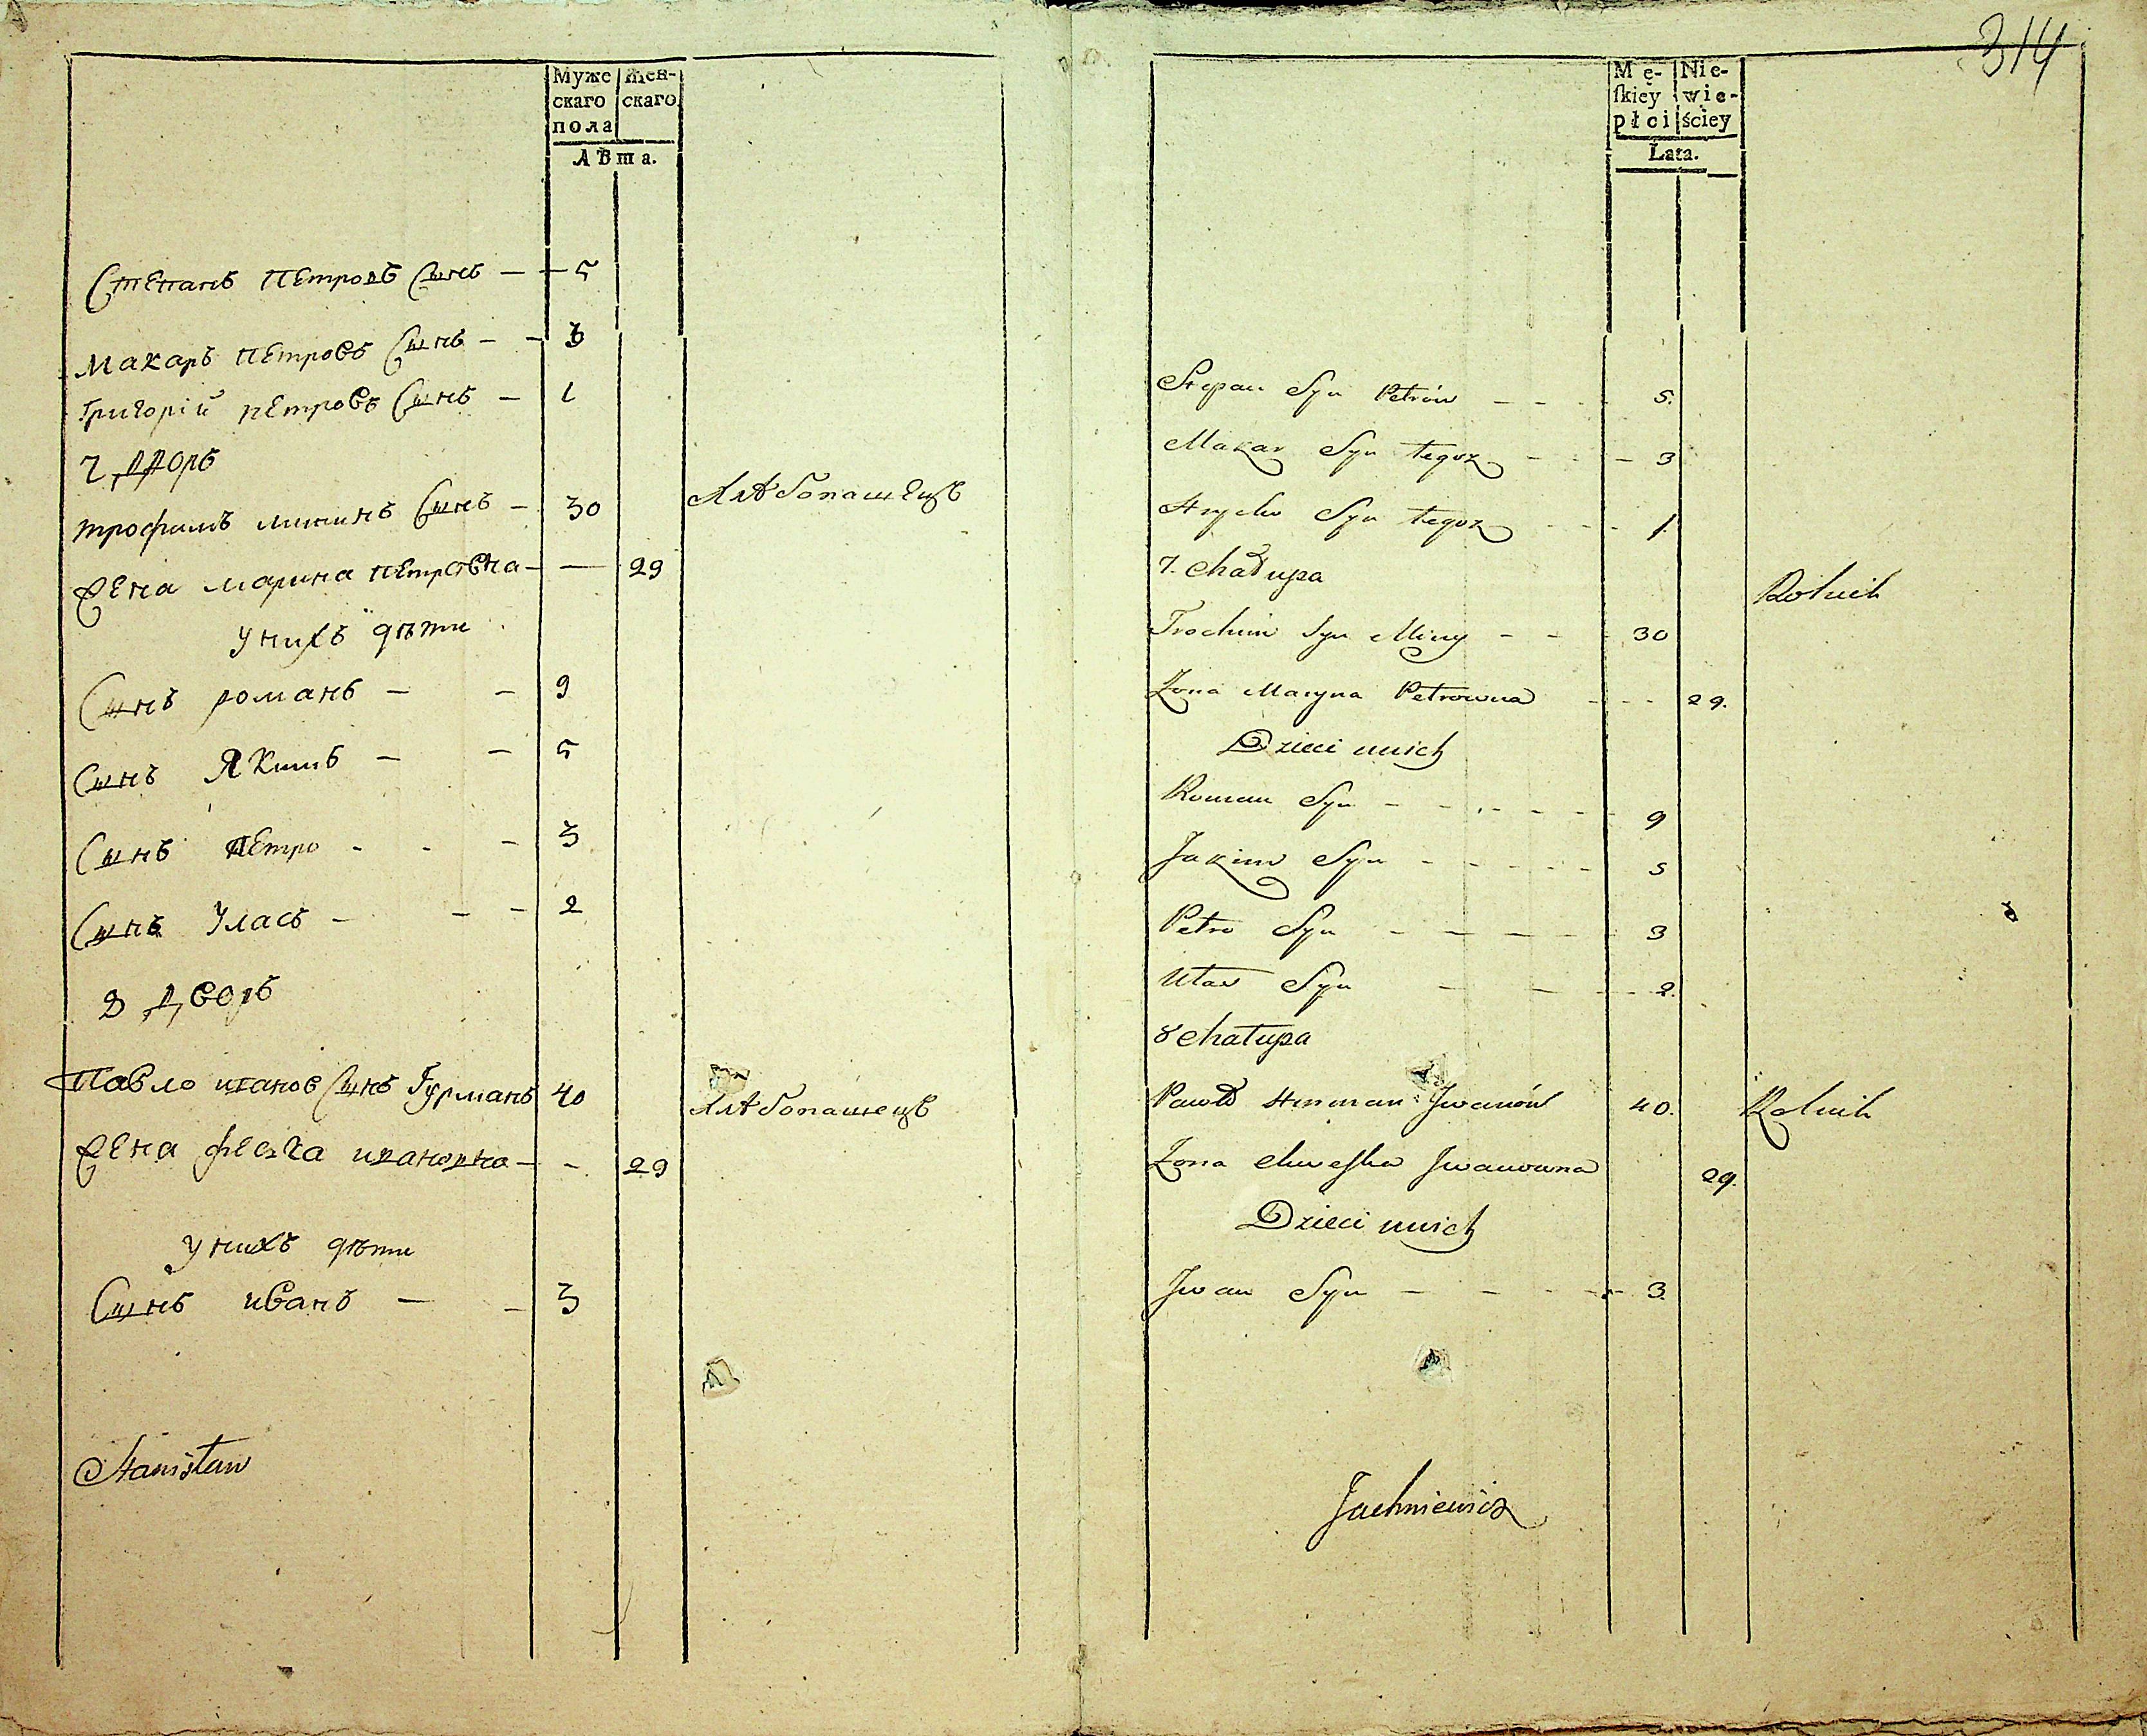 314
Муже
скаго
пола
жен-
скаго
лѣта.
Степанъ Петровъ Сынъ — — 5
Макаръ Петровъ Сынъ — — 3
Григорій Петровъ Сынъ — 1
7 Дворъ
трофимъ мининъ Сынъ — 30
Хлѣбопашецъ
Жена марина Петровна — — 29
у нихъ дѣти
Сынъ романъ — — 9
Сынъ Якимъ — — 5
Сынъ Петро - - — 3
Сынъ Уласъ — — — 2
8 Дворъ
Павло иванов Сынъ Гурманъ 40
Хлѣбопашецъ
Жена феска ивановна — - 29
у нихъ дѣти
Сынъ иванъ — — 3
Stanisław
Mę-
ſkiey
płci
Nie-
wie-
ściey
Lata.
Stepan Syn Petrów — — - 5.
Makar Syn tegoz - - — 3
Hryćko Syn tegoz - - - 1.
7. Chałupa
Rolnik
Trochim Syn Miny - - - 30
Żona Maryna Petrowna - - - 29.
Dzieci unich
Roman Syn - - - - - - 9
Jakim Syn - - - - - 5
Petro Syn - — — - 3
Ułas Syn — — - - 2.
8 Chałupa
Paweł Hurman Jwanów 40.
Rolnik
Żona Chweſka Jwanowna 29.
Dzieci unich
Jwan Syn — - - - - 3.
Jachniewicz